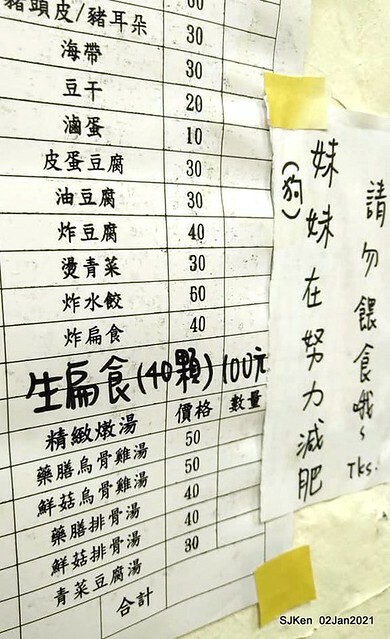 豬頭皮/豬耳朵 30
海帶 30
豆干 20
滷蛋 10
皮蛋豆腐 30
油豆腐 30
炸豆腐 40
燙青菜 30
炸水餃 60
炸扁食 40
生扁食(40顆)100元
精緻燉湯 價格 數量
藥膳烏骨雞湯 50
鮮菇烏骨雞湯 50
藥膳排骨湯 40
鮮菇排骨湯 40
青菜豆腐湯 30
合計
請勿餵食哦~ Tks.
妹妹在努力減肥
(狗)
SJKen 02Jan2021